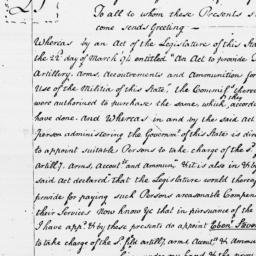 To all to whom these Presents s
come sends Greeting —
Whereas by an Act of the Legislature of this Sta
the 22d day of March 94 entitled "An Act to provide
Artillery, Arms, Accoutrements and Ammunition for
Use of the Militia of this State," the Commissrs there
were authorized to purchase the same which accord
have done. And Whereas in and by the said Act
person administering the Governmt of this State is direc
to appoint suitable Persons to take charge of the sd
artilly. Arms, Accouts and ammun. & it is also in & b
said Act declared that the Legislature would therea
provide for paying such Persons a reasonable Compen
their Services Now know ye that in pursuance of the
I have appd & by these presents do appoint Ebenr Steven
to take charge of the sd field artilly, arms Accouts & Ammun
under my hand & the